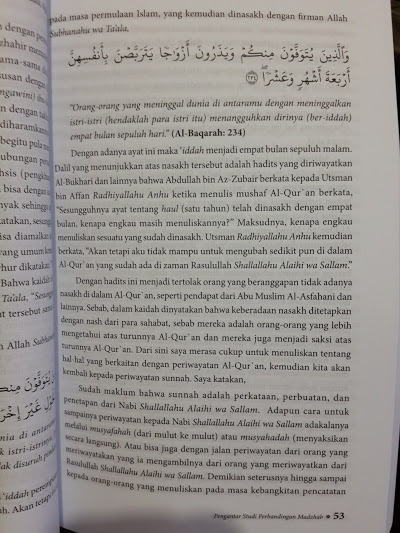 pada masa permulaan Islam, yang kemudian dinasakh dengan firman Allah
Subhanahu wa Ta'ala,
وَٱلَّذِينَ يُتَوَفَّوْنَ مِنكُمْ وَيَذَرُونَ أَزْوَٰجًا يَتَرَبَّصْنَ بِأَنفُسِهِنَّ
أَرْبَعَةَ أَشْهُرٍ وَعَشْرًا ۖ ﴿٢٣٤﴾
"Orang-orang yang meninggal dunia di antaramu dengan meninggalkan
istri-istri (hendaklah para istri itu) menangguhkan dirinya (ber-iddah)
empat bulan sepuluh hari." (Al-Baqarah: 234)
Dengan adanya ayat ini maka 'iddah menjadi empat bulan sepuluh malam.
Dalil yang menunjukkan atas nasakh tersebut adalah hadits yang diriwayatkan
Al-Bukhari dan lainnya bahwa Abdullah bin Az-Zubair berkata kepada Utsman
bin Affan Radhiyallahu Anhu ketika menulis mushaf Al-Qur`an berkata,
"Sesungguhnya ayat tentang haul (satu tahun) telah dinasakh dengan empat
bulan, kenapa engkau masih menuliskannya?" Maksudnya, kenapa engkau
menuliskan sesuatu yang sudah dinasakh. Utsman Radhiyallahu Anhu kemudian
berkata, "Akan tetapi aku tidak mampu untuk mengubah sedikit pun di dalam
Al-Qur`an yang sudah ada di zaman Rasulullah Shallallahu Alaihi wa Sallam."
Dengan hadits ini menjadi tertolak orang yang beranggapan tidak adanya
nasakh di dalam Al-Qur`an, seperti pendapat dari Abu Muslim Al-Asfahani dan
lainnya. Sebab, dalam kaidah dinyatakan bahwa keberadaan nasakh ditetapkan
dengan nash dari para sahabat, sebab mereka adalah orang-orang yang lebih
mengetahui atas turunnya Al-Qur`an dan mereka juga menjadi saksi atas
turunnya Al-Qur`an. Dari sini saya merasa cukup untuk menuliskan tentang
hal-hal yang berkaitan dengan periwayatan Al-Qur`an, kemudian kita akan
kembali kepada periwayatan sunnah. Saya katakan,
Sudah maklum bahwa sunnah adalah perkataan, perbuatan, dan
penetapan dari Nabi Shallallahu Alaihi wa Sallam. Adapun cara untuk
sampainya periwayatan kepada Nabi Shallallahu Alaihi wa Sallam adakalanya
melalui musyafahah (dari mulut ke mulut) atau musyahadah (menyaksikan
secara langsung). Atau bisa juga dengan jalan periwayatan dari orang yang
meriwayatkan yang ia mengambilnya dari orang yang meriwayatkan dari
Rasulullah Shallallahu Alaihi wa Sallam. Demikian seterusnya hingga sampai
kepada orang-orang yang menuliskan pada masa kebangkitan pencatatan
Pengantar Studi Perbandingan Madzhab • 53